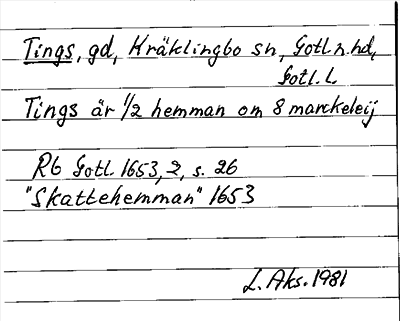 Tings, gd, Kräklingbo sn, Gotl. n. hd,
Gotl. L
Tings är 1/2 hemman om 8 marckeleij
Rb Gotl. 1653, 2, s. 26
"Skattehemman" 1653
L. Aks. 1981